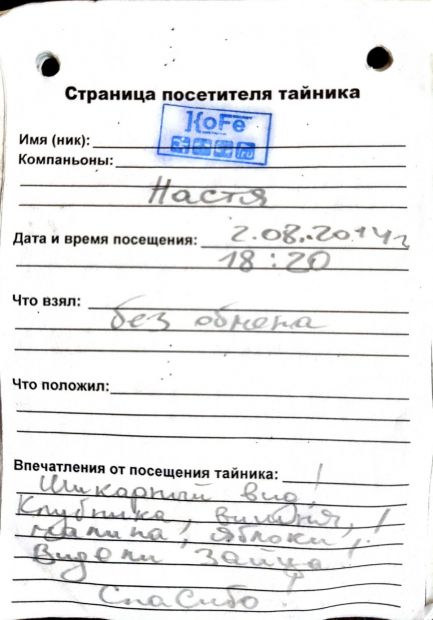 Страница посетителя тайника
KoFe
Имя (ник):
Компаньоны:
Настя
Дата и время посещения: 2.08.2014г
18:20
Что взял:
без обмена
Что положил:
Впечатления от посещения тайника:
Шикарный вид!
Клубника, вишня,
малина, яблоки!
Видели зайца!
Спасибо!